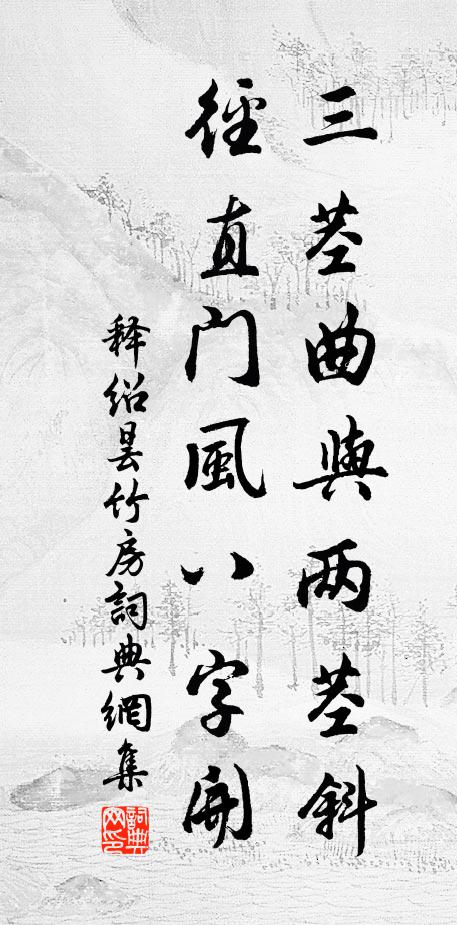 三茎曲與两茎斜
徑直门風八字開
释绍昙竹房詞典網集
詞典网印